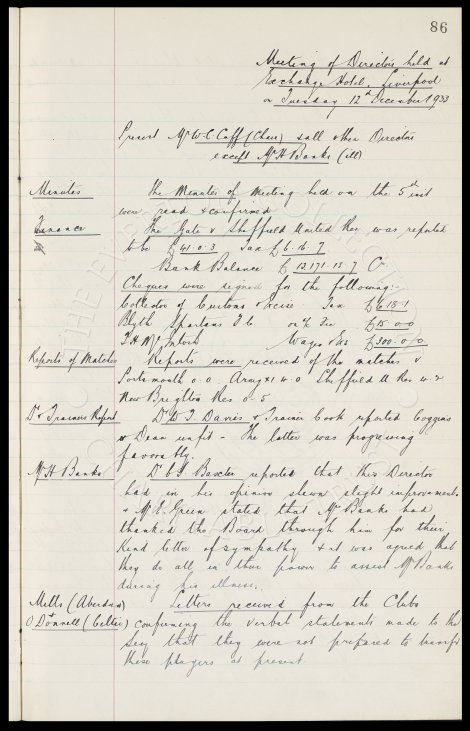 86
Meeting of Directors held at
Exchange Hotel, Liverpool
on Tuesday 12th December 1933
Present Mr W C Cuff (Chair) & all other Directors
except Mr H Banks (ill)
Minutes The Minutes of Meeting held on the 5th inst
were read & confirmed
Finance The Gate v Sheffield United Res was reported
to be £41.0.3 Tax £6.16.7
Bank Balance £12,171.13.7 Cr
Cheques were signed for the following:-
Collector of Customs & Excise Tax £6.18.1
Blyth Spartans F.C. Fee £15.0.0
T H McIntosh Wages & Exs £300.0/0
Reports of Matches Reports were received of the matches v
Portsmouth 0-0 Army XI 4-0 Sheffield U Res
New Brighton Res 0-5
Dr & Trainers Report Dr W T Davies & Trainer Cook reported Coggins
& Dean unfit - The latter was progressing
favorably.
Mr H Banks Dr C S Baxter reported that this Director
had in his opinion shewn slight improvements
& Mr Green stated that Mr Banks had
thanked the Board through him for their
kind letter of sympathy & it was agreed that
they do all in their power to assist Mr Banks
during his illness.
Mills (Aberdeen) Letters received from the Clubs
O'Donnell (Celtic) confirming the verbal statements made to the
Secy that they were not prepared to transfer
these players at present.